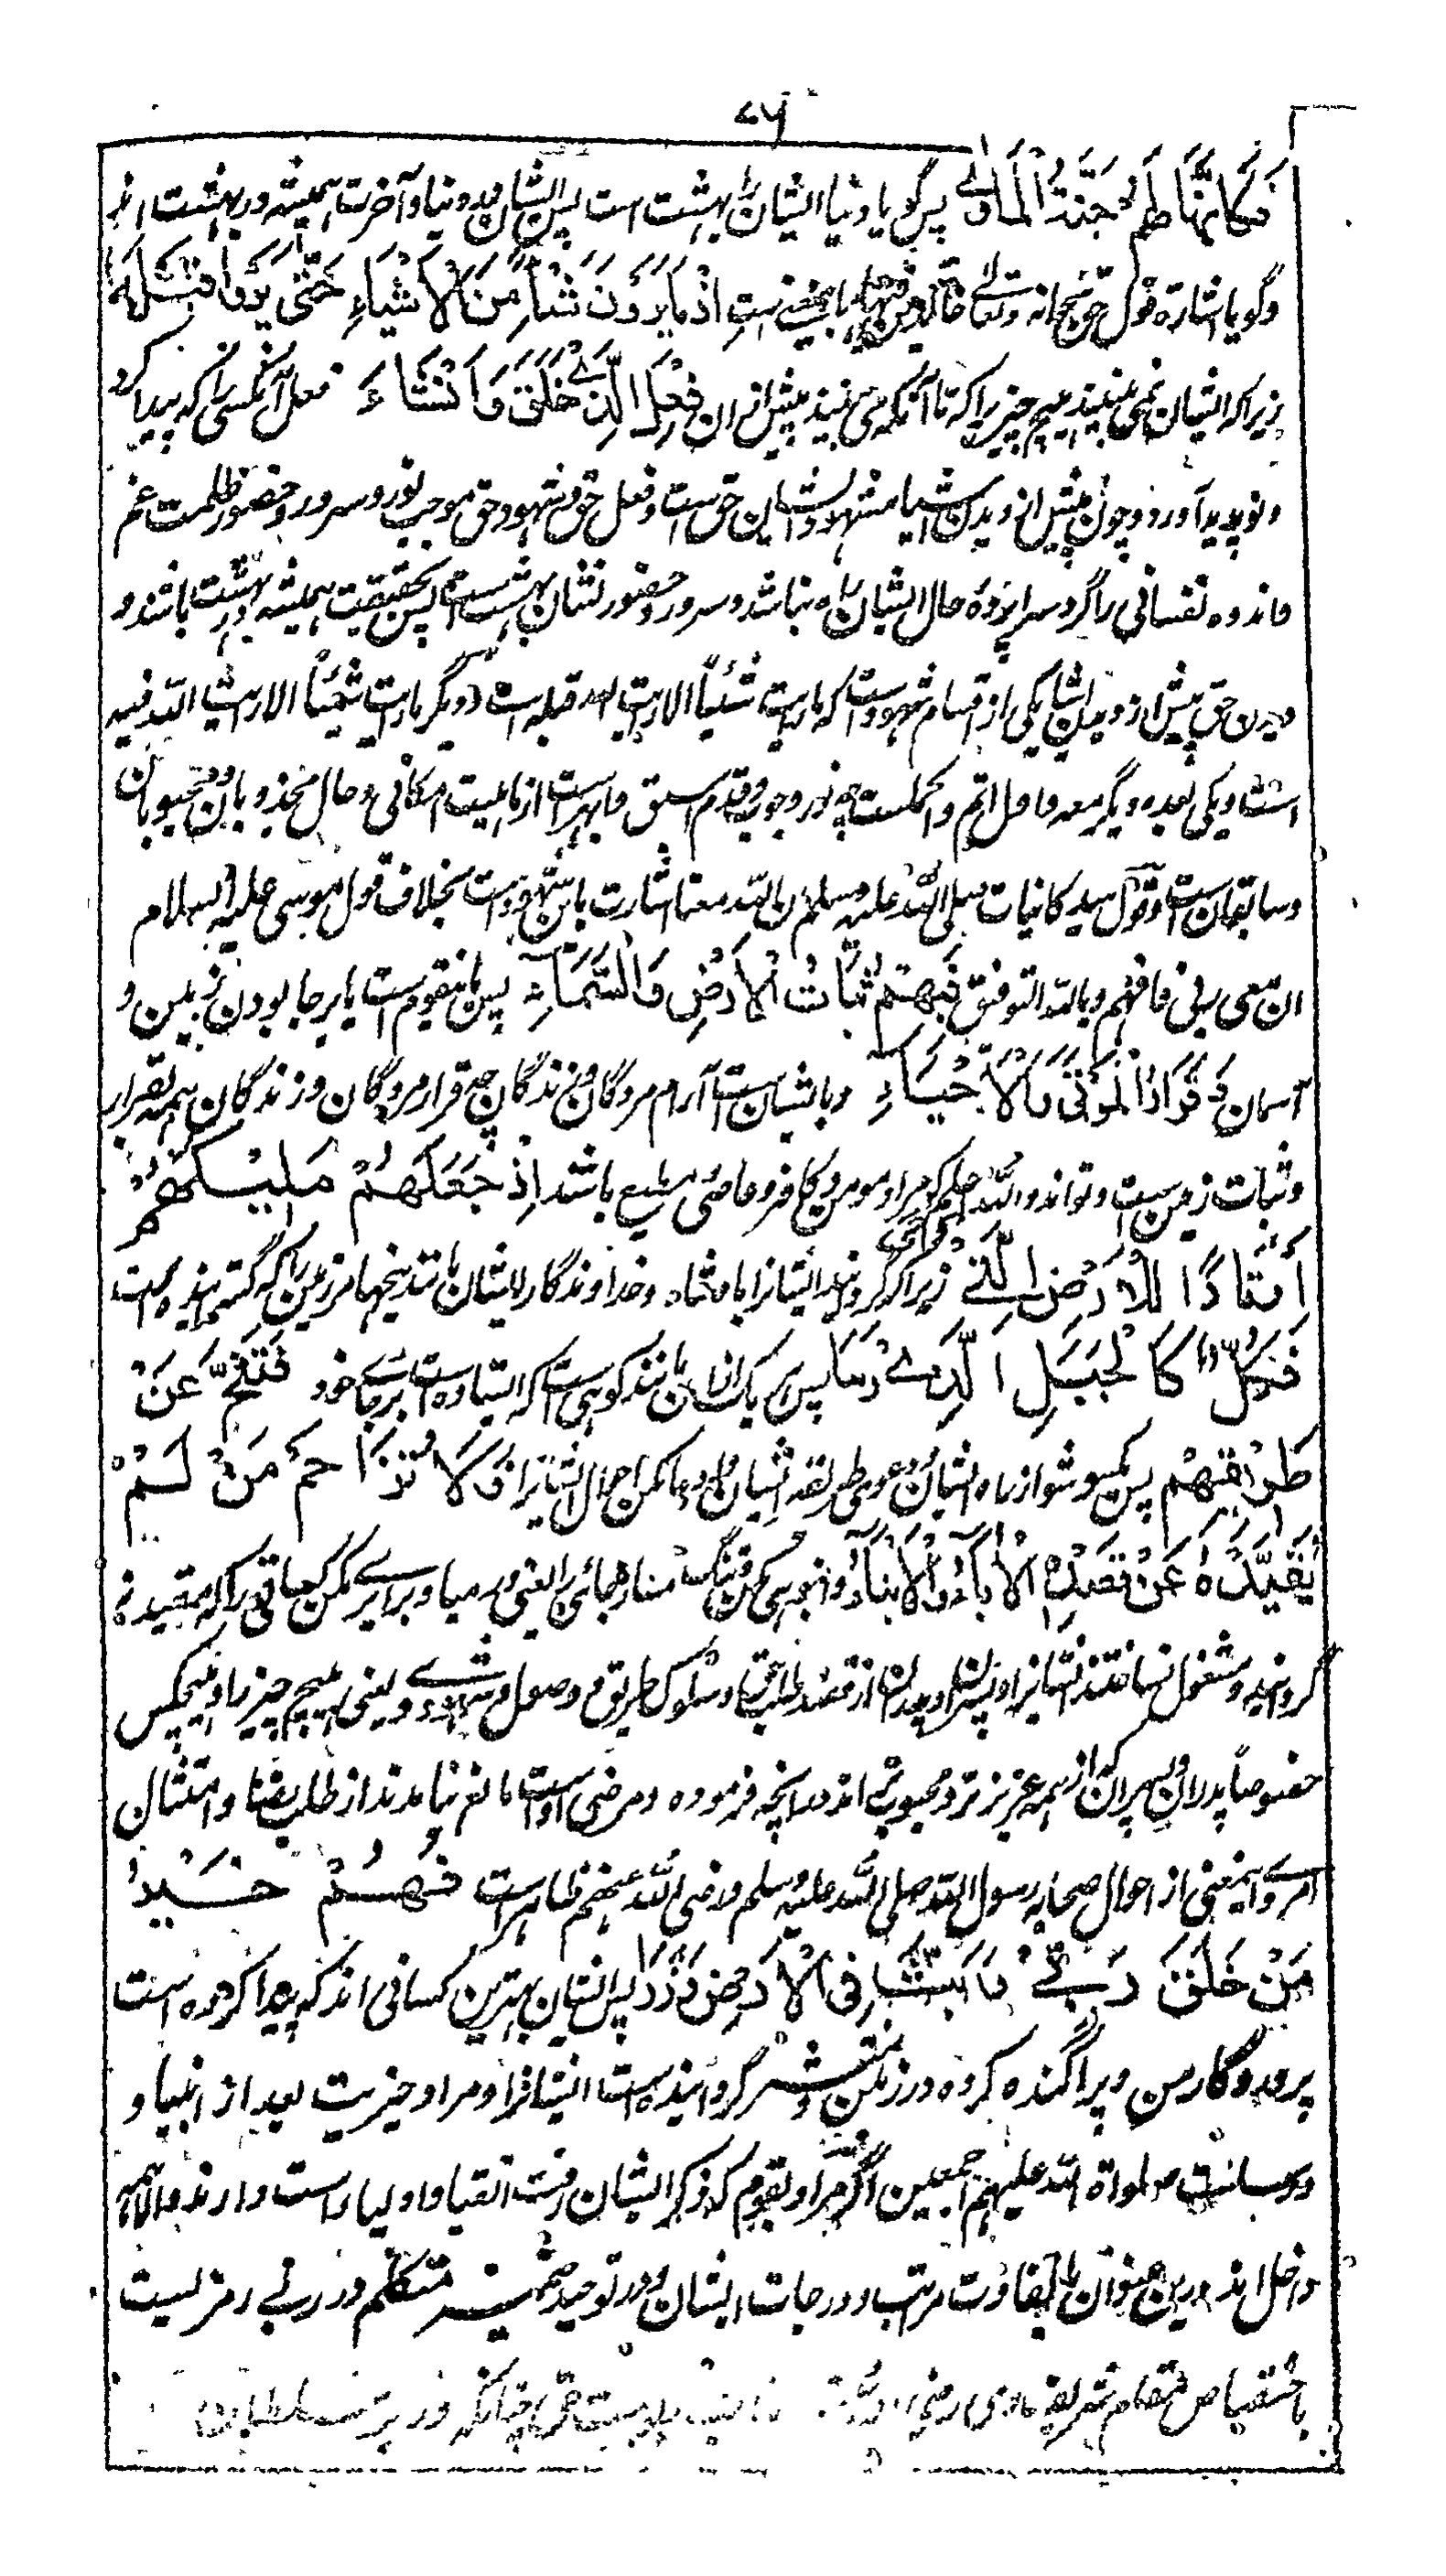 ۷۶
فَكَانَّهَا لَهُمْ جَنَّةُ الْمَاوٰی پس گویا دنیا ایشان را بهشت است پس ایشان در دنیا و آخرت همیشه در بهشت اند
و گویا اشارة قول حق سبحانه وتعالی خالدین فیها باینمعنی ست اِذْ مَا يَرَوْنَ شَيْأً مِّنَ الْاَشْيَاءِ حَتّٰى يَرَوْا قَبْلَهٗ
زیراکه ایشان نمی بینند هیچ چیزیرا که تا آنکه می بینند پیش از ان فِعْلَ الَّذِیْ خَلَقَ وَاَنْشَاءَ فعل آنکسی را که پیدا کرد
و نو پدید آورد و چون پیش از دیدن اشیا مشهود ایشان حق است و فعل حق و شهود حق موجب نور و سرور و حضور ظلمت غم
و اندوه نفسانی را گرد سراپردۀ حال ایشان راه نباشد و سرور و حضور نشان بهشت ست پس بحقیقت همیشه در بهشت باشند و
دیدن حق پیش از دیدن اشیا یکی از اقسام شهودست که ما رایت شئیاً الا رایت الله قبله است و دیگر ما رایت شیئاً الا رایت الله فیه
است و یکی بعده و دیگر معه و اول اتم و اکملست چه نور وجوب و قدم اسبق و ابهر است از ماهیت امکانی و حال مجذوبان و محبوبان
و سابقان ست و قول سید کائنات صلی الله علیه وسلم ان الله معنا اشارت باین شهودست بخلاف قول موسی علیه السلام
ان معی ربی فافهم وبالله التوفیق فَبِهِمْ ثَبَاتُ الْاَرْضِ وَالسَّمَآءِ پس بانقوم ست پا برجا بودن زمین و
آسمان وَقَرَارُ الْمَوْتٰی وَالْاَحْيَاءِ و با ایشان ست آرام مردگان و زندگان چه قرار مردگان و زندگان همه بقرار
و ثبات زمین ست و تواند والله اعلم که مراد مومن و کافر و عاصی و مطیع باشد اِذْ جَعَلَهُمْ مَلِیْكُهُمْ
اَوْتَادًا لِلْاَرْضِ الَّتِیْ دَحٰی زیراکه گردانید ایشانرا پادشاه و خداوندگار ایشان مانند میخها مر زمین را که گسترانیده است
فَكُلٌّ كَالْجَبَلِ الَّذِیْ رَسَا پس هر یک از ایشان مانند کوهی ست که ایستاده است برجای خود فَتَنَحَّ عَنْ
طَرِيْقِهِمْ پس یکسو شو از راه ایشان و دعوی طریقه ایشان مکن و مزاحم حال ایشان وَلَا تُزَاحِمْ مَنْ لَّمْ
يُقَيِّدْهُ عَنْ قَصْدِهِ الْاٰبَآءُ وَالْاَبْنَاءُ و انبوهی مکن و تنگ مساز جائی را یعنی در میا و برابری مکن کسانی را که مقید نه
گردانیده و مشغول نساخته ایشانرا و پسران و پدران از قصد طلب بقا و سلوک طریق و وصول وی و یعنی هیچ چیز را و هیچکس
خصوصاً پدران و پسران که از همه عزیز تر و محبوب تر اند در آنچه فرموده و مرضی اوست مانع نیامدند از طلب لقا و امتثال
امر وی و اینمعنی از احوال صحابه رسول الله صلی الله علیه وسلم و رضی الله عنهم ظاهرست فَهُمْ خَيْرُ
مَنْ خَلَقَ رَبِّیْ وَاَبَثَّ فِی الْاَرْضِ وَذَرَا پس ایشان بهترین کسانی اند که پیدا کرده است
پروردگار من و پراگنده کرده در زمین و منتشر گردانیده است ایشانرا و مراد خیریت بعد از انبیا و
مرسلانست صلواة الله علیهم اجمعین اگر مراد بقوم که ذکر ایشان رفت اتقیا و اولیا راست دارند والا همه
داخل اند درین عنوان با تفاوت مراتب و درجات ایشان و در توحید ضمیر متکلم در ربی رمزیست
باختصاص مقام شریف وی رضی الله عنه